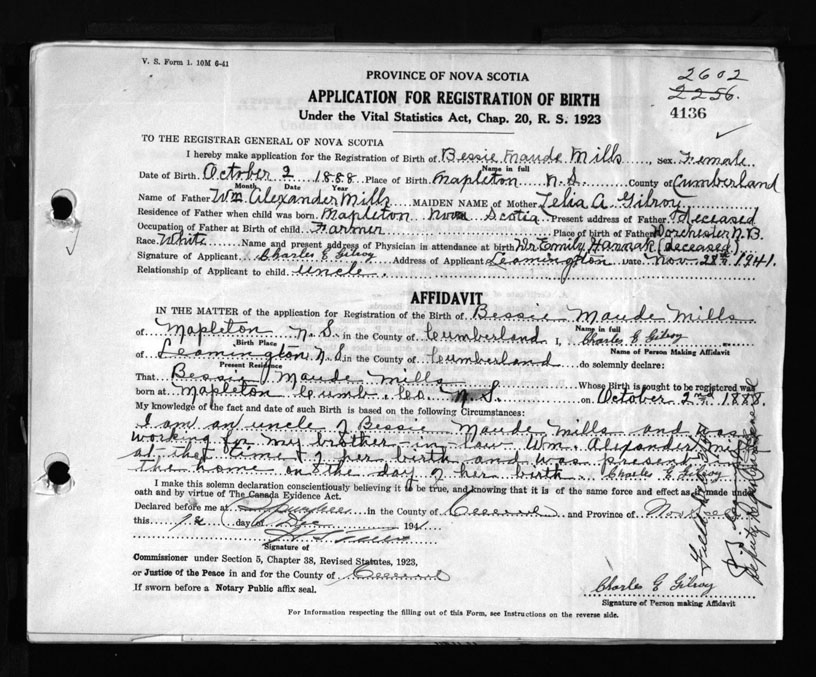 V. S. Form 1. 10M 6-41
2602
2256.
PROVINCE OF NOVA SCOTIA
APPLICATION FOR REGISTRATION OF BIRTH
4136
Under the Vital Statistics Act, Chap. 20, R. S. 1923
TO THE REGISTRAR GENERAL OF NOVA SCOTIA
I hereby make application for the Registration of Birth of Bessie Maude Mills, Sex Female
Name in full
Date of Birth October 2 1888 Place of Birth Mapleton N.S. County of Cumberland
Month Date Year
Name of Father Wm Alexander Mills MAIDEN NAME of Mother Lelia A Gilroy
Residence of Father when child was born Mapleton Nova Scotia Present address of Father Deceased
Occupation of Father at Birth of child Farmer Place of birth of Father Dorchester N.B.
Race White Name and present address of Physician in attendance at birth Dr Emily Hannah (deceased)
Signature of Applicant Charles E Gilroy Address of Applicant Leamington Date Nov. 28th 1941.
Relationship of Applicant to child uncle.
AFFIDAVIT
IN THE MATTER of the application for Registration of the Birth of Bessie Maude Mills
Name in full
of Mapleton N.S. in the County of Cumberland I, Charles E Gilroy
Birth Place Name of Person Making Affidavit
of Leamington N.S in the County of Cumberland do solemnly declare:
Present Residence
That Bessie Maude Mills Whose Birth is sought to be registered was
born at Mapleton Cumb. Co. N.S. on October 2nd 1888.
My knowledge of the fact and date of such Birth is based on the following Circumstances:
I am an uncle of Bessie Maude Mills and was
working for my brother-in-law Wm. Alexander
at that time of her birth and was present in
the home on the day of her birth. Charles E Gilroy
I make this solemn declaration conscientiously believing it to be true, and knowing that it is of the same force and effect as if made under
oath and by virtue of The Canada Evidence Act.
Declared before me at in the County of and Province of
this 12 day of Dec 1941
Signature of
Commissioner under Section 5, Chapter 38, Revised Statutes, 1923,
or Justice of the Peace in and for the County of
If sworn before a Notary Public affix seal.
Charles E Gilroy
Signature of Person making Affidavit
For Information respecting the filling out of this Form, see Instructions on the reverse side.
Deputy Registrar General